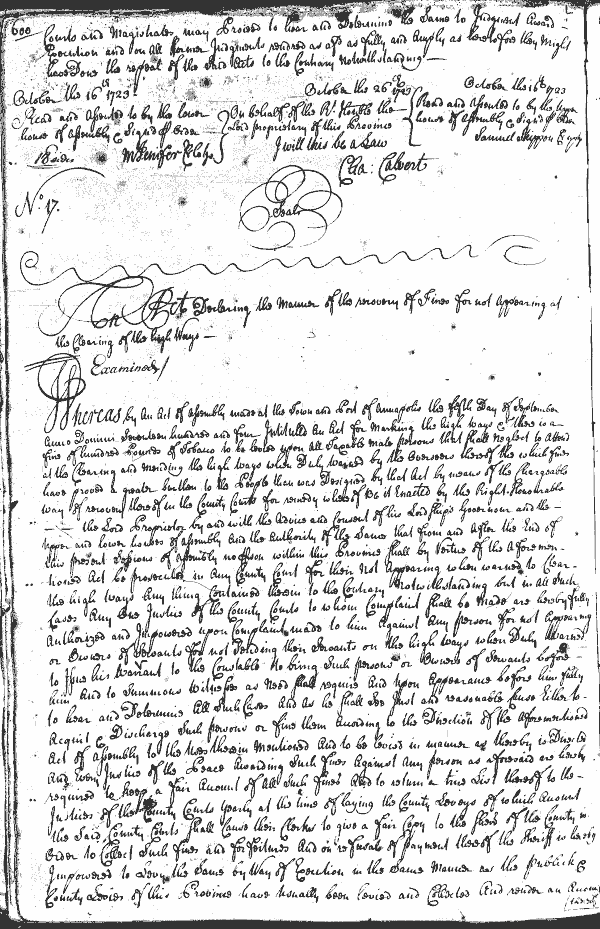 600
Courts and Magistrates may Proceed to hear and Determine the Same to Judgment Award
Execution and on All former Judgments rendred as afd as fully and Amply as heretofore they Might
have Done the repeal of the Said Acts to the Contrary Notwithstanding
October the 16th 1723
Read and Assented to by the lower
house of Assembly & Signed Order
MJenifer Cl
October the 26th 1723
On behalf of the Rt Honble the
Lord proprietary of this Province
I will this be a Law
Cha: Calvert
October the 16th 1723
Read and Assented to by the upper
house of Assembly & Signed Order
Samuel Skippon
No 17.
Seale
An Act Declaring the Manner of the recovery of Fines for not Appearing at
the Clearing of the high Ways
Examined
Whereas by An Act of Assembly made at the Town and Port of Annapolis the fifth Day of September
Anno Domini Seventeen hundred and four Intituled An Act for Marking the high ways & there is a
fine of hundred Pounds of Tobacco to be levied upon All Taxable male persons that shall neglect to Attend
at the Clearing and Mending the high Ways when Duly warned by the Overseers thereof the which fines
have proved a greater burthen to the People than was Designed by that Act by means of the Chargeable
way of recovery thereof in the County Courts for remedy whereof be it Enacted by the Right Honourable
the Lord Proprietor by and with the Advice and Consent of his Lordships Governour and the
upper and lower houses of Assembly And the Authority of the Same that from and After the End of
this present Sessions of Assembly no person within this Province shall by Vertue of the Aforemen-
tioned Act be prosecuted in Any County Court for their not Appearing when warned to Clear
the high Ways Any thing Contained therein to the Contrary Notwithstanding but in All Such
Cases Any One Justice of the County Courts to whom Complaint Shall be Made are hereby fully
Authorized and Impowered upon Complaint made to him Against Any person for not Appearing
or Owners of Servants for not Sending their Servants on the high ways when Duly Warned
to Issue his Warrant to the Constable to bring Such persons or Owners of Servants before
him And to Summons Witnesses as Need shall require And upon Appearance before him fully
to hear and Determine All Such Cases And as he shall See Just and reasonable Cause Either to
Acquit & Discharge Such persons or fine them According to the Direction of the Aforementioned
Act of Assembly to the Uses therein Mentioned And to be levied in manner as thereby is Directed
And Every Justice of the Peace Awarding Such fines Against Any person as aforesaid are hereby
required to keep a Fair Amount of All Such fines And to return a true List thereof to the
Justices of the County Courts yearly at the time of laying the County Leveys of which Amount
the Said County Courts shall Cause their Clerks to give a Fair Copy to the Sheriff of the County in
Order to Collect Such fines and forfeitures And on refusall of payment thereof the Sheriff is hereby
Impowered to Levy the Same by Way of Execution in the Same Manner as the publick &
County Levies of this Province have Usually been levied and Collected And render an Account